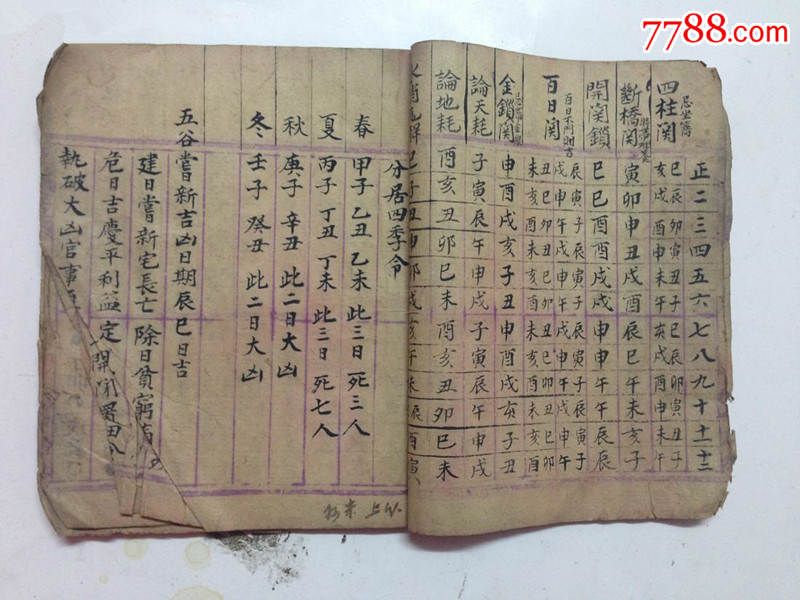 7788.com
正二三四五六七八九十十一十二
四柱関 忌坐轎
巳辰卯寅丑子巳辰卯寅丑子
亥戌酉申未午亥戌酉申未午
斷橋関 寅卯申丑戌酉辰巳午未亥子
開関鎖 巳巳酉酉戌戌申申午午辰辰
百日関 百日不
辰寅子辰寅子辰寅子辰寅子
戌申午戌申午戌申午戌申午
丑巳卯丑巳卯丑巳卯丑巳卯
未亥酉未亥酉未亥酉未亥酉
金鎖関 申酉戌亥子丑申酉戌亥子丑
論天耗 子寅辰午申戌子寅辰午申戌
論地耗 酉亥丑卯巳未酉亥丑卯巳未
巳子丑申卯戌亥午辰酉寅
分居四季令
春 甲子 乙丑 乙未 此三日死三人
夏 丙子 丁丑 丁未 此三日死七人
秋 庚子 辛丑 此二日大凶
冬 壬子 癸丑 此二日大凶
五谷嘗新吉凶日期辰巳日吉
建日嘗新宅長亡 除日貧窮
危日吉慶平利益 定 開閉
執破大凶官事